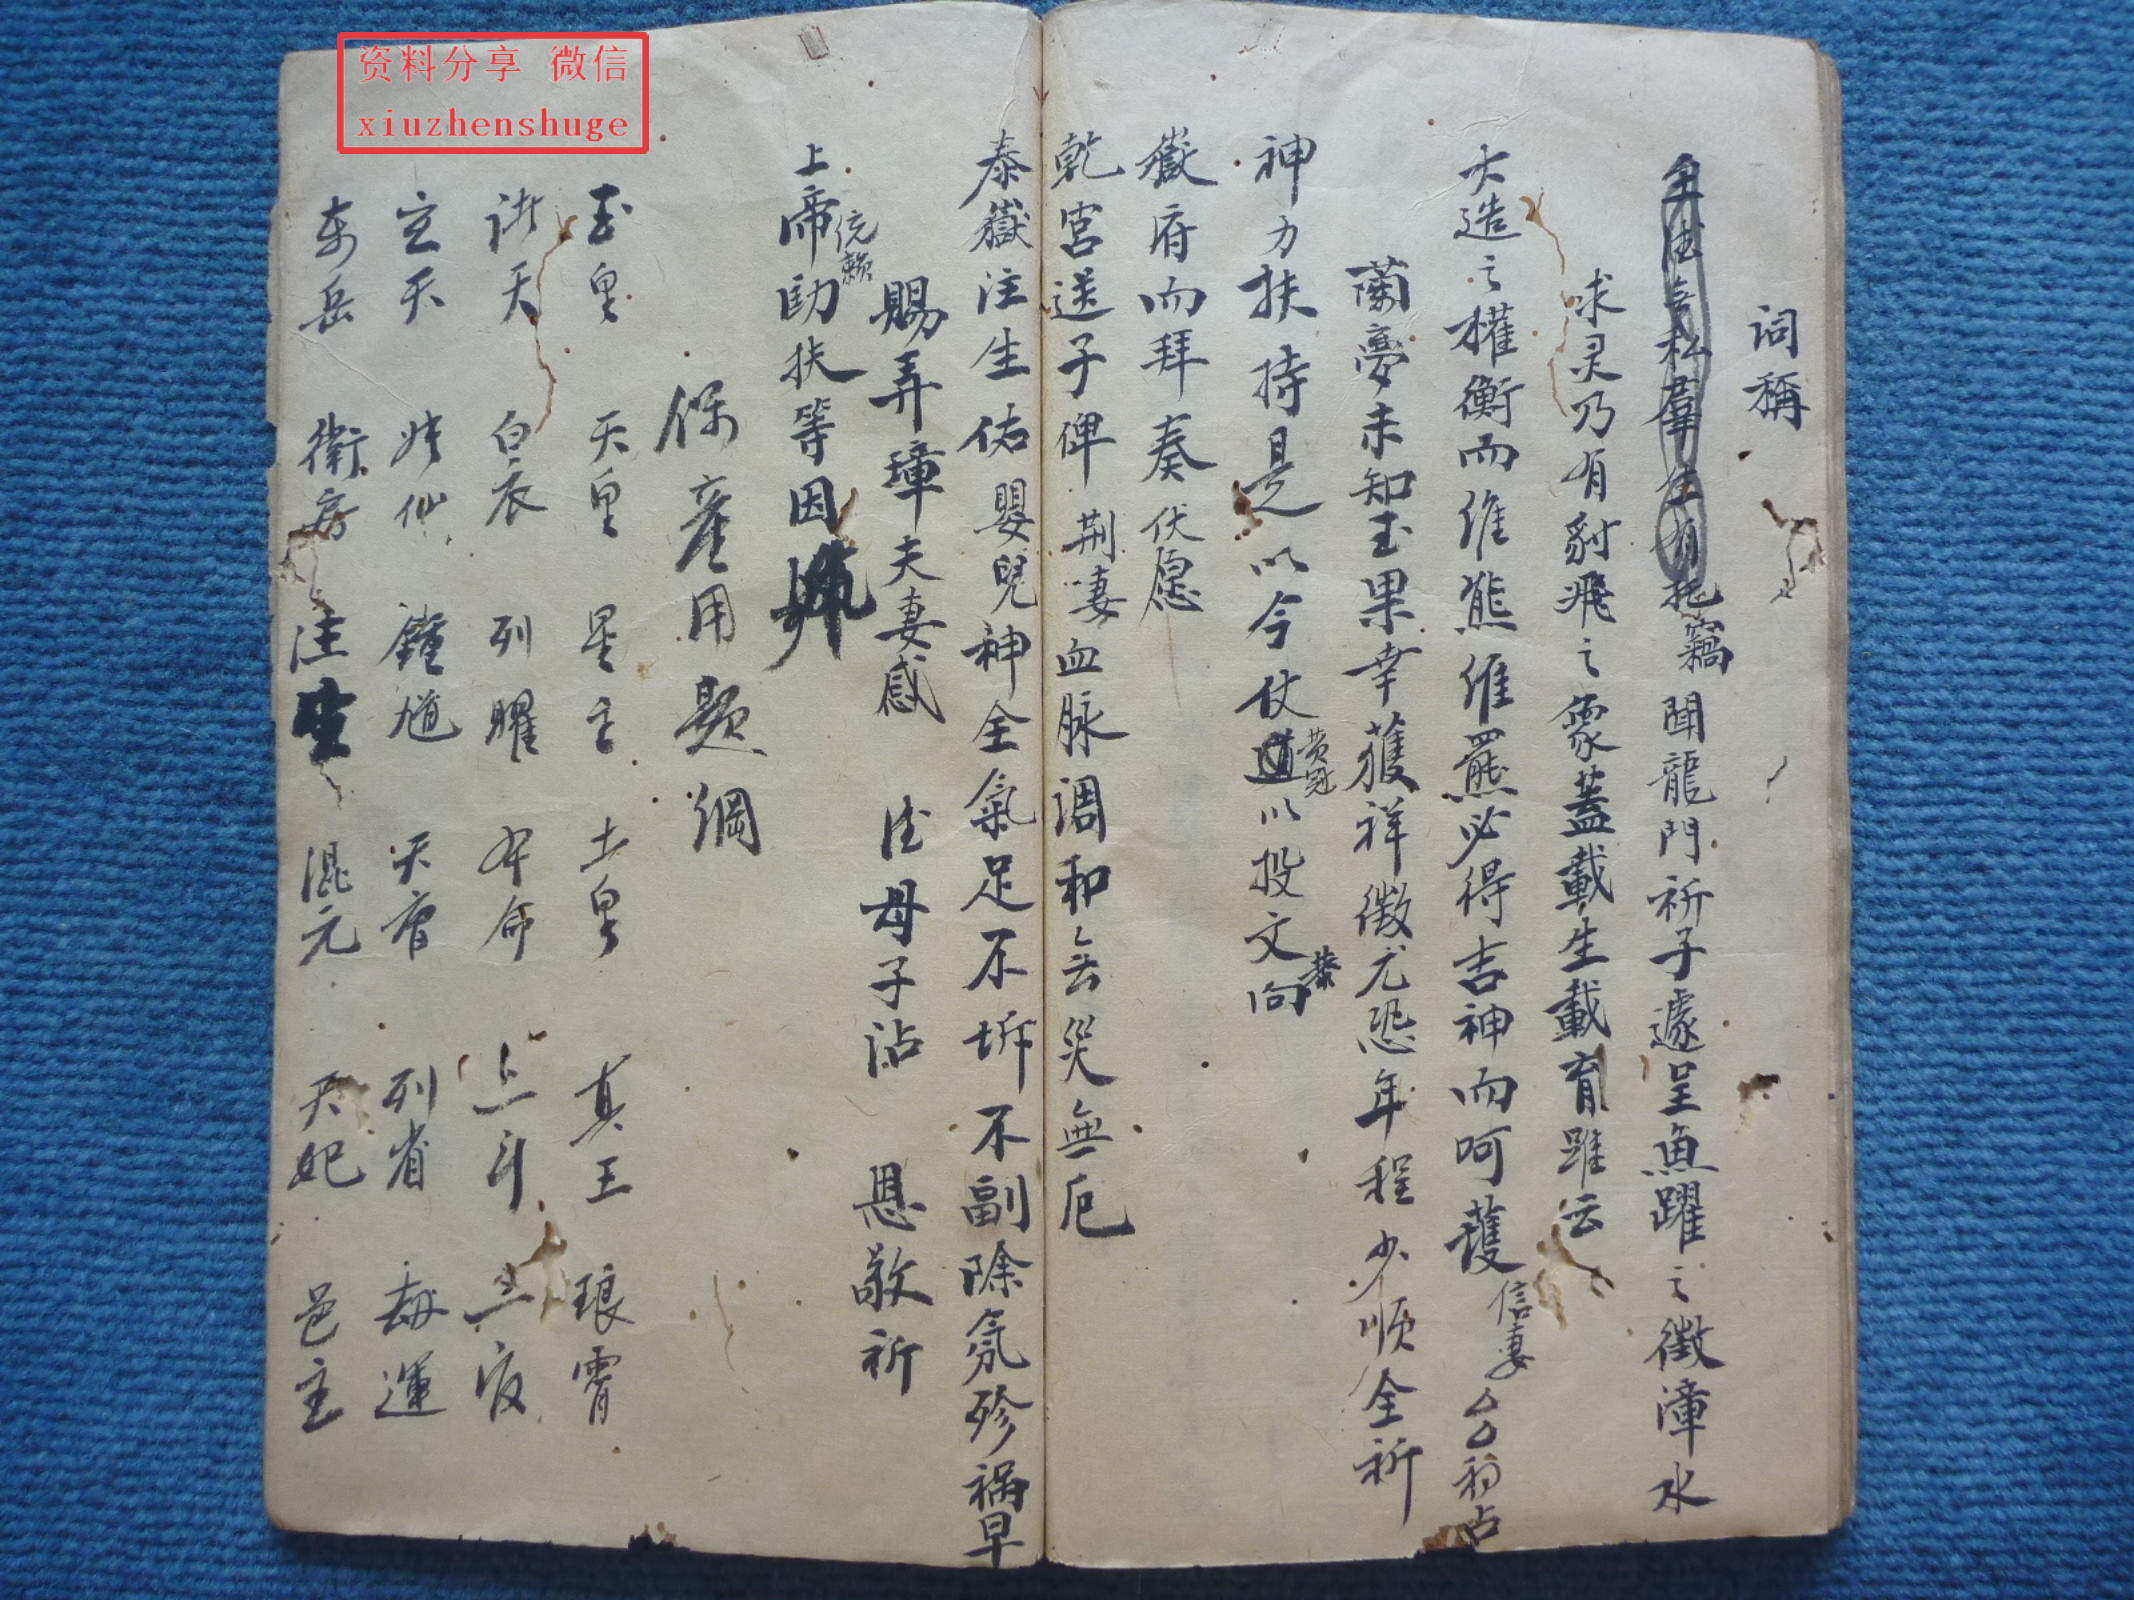 资料分享 微信
xiuzhenshuge
词稱
竊聞龍門祈子遽呈魚躍之徵漳水
求灵乃有豺飛之蒙蓋載生載育雖云
大造之權衡而維熊維羆必得吉神而呵護信妻厶厶初占
蘭夢未知玉果幸獲祥徵尤恐年程少順全祈
神力扶持是以今仗黄冠以投文恭向
嶽府而拜奏伏愿
乾宮送子俾荆妻血脉调和無災無厄
泰嶽注生佑嬰兒神全氣足不坼不副除氛殄禍早
賜弄璋夫妻感 法母子沾 恩敬祈
上帝伏賴助扶等因
保產用題綱
玉皇 天皇 星主 土皇 真王 琅霄
諸天 白衣 列曜 本命 三斗 三官
玄天 姓仙 鍾馗 天曹 列省 劫運
東岳 衛房 注生 混元 天妃 邑主